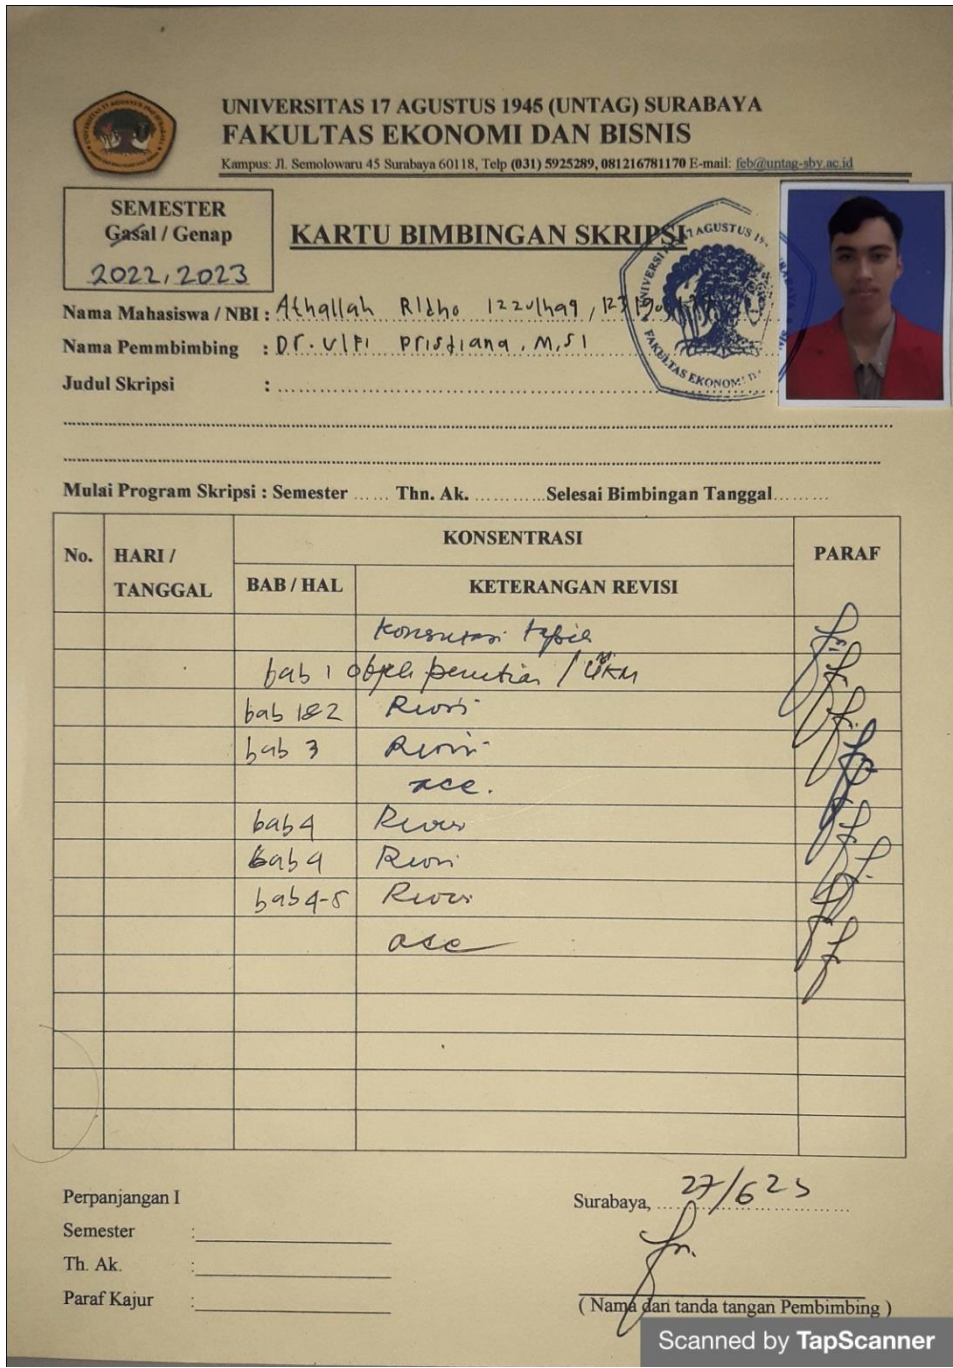 UNIVERSITAS 17 AGUSTUS 1945 (UNTAG) SURABAYA
FAKULTAS EKONOMI DAN BISNIS
Kampus: Jl. Semolowaru 45 Surabaya 60118, Telp (031) 5925289, 081216781170 E-mail: feb@untag-sby.ac.id
SEMESTER
Gasal / Genap
2022, 2023
KARTU BIMBINGAN SKRIPSI
Nama Mahasiswa / NBI : Athallah Ridho
Nama Pemmbimbing : Dr. Ulfi Pristiana, M,Si
Judul Skripsi :
Mulai Program Skripsi : Semester ...... Thn. Ak. ........... Selesai Bimbingan Tanggal.........
No. HARI / TANGGAL KONSENTRASI PARAF
BAB / HAL KETERANGAN REVISI
Konsultasi topik
bab 1 objek / UKM
bab 1&2 Revisi
bab 3 Revisi
acc.
bab 4 Revisi
bab 4 Revisi
bab 4-5 Revisi
acc
Perpanjangan I
Semester :
Th. Ak. :
Paraf Kajur :
Surabaya, 27/6 23
( Nama dan tanda tangan Pembimbing )
Scanned by TapScanner